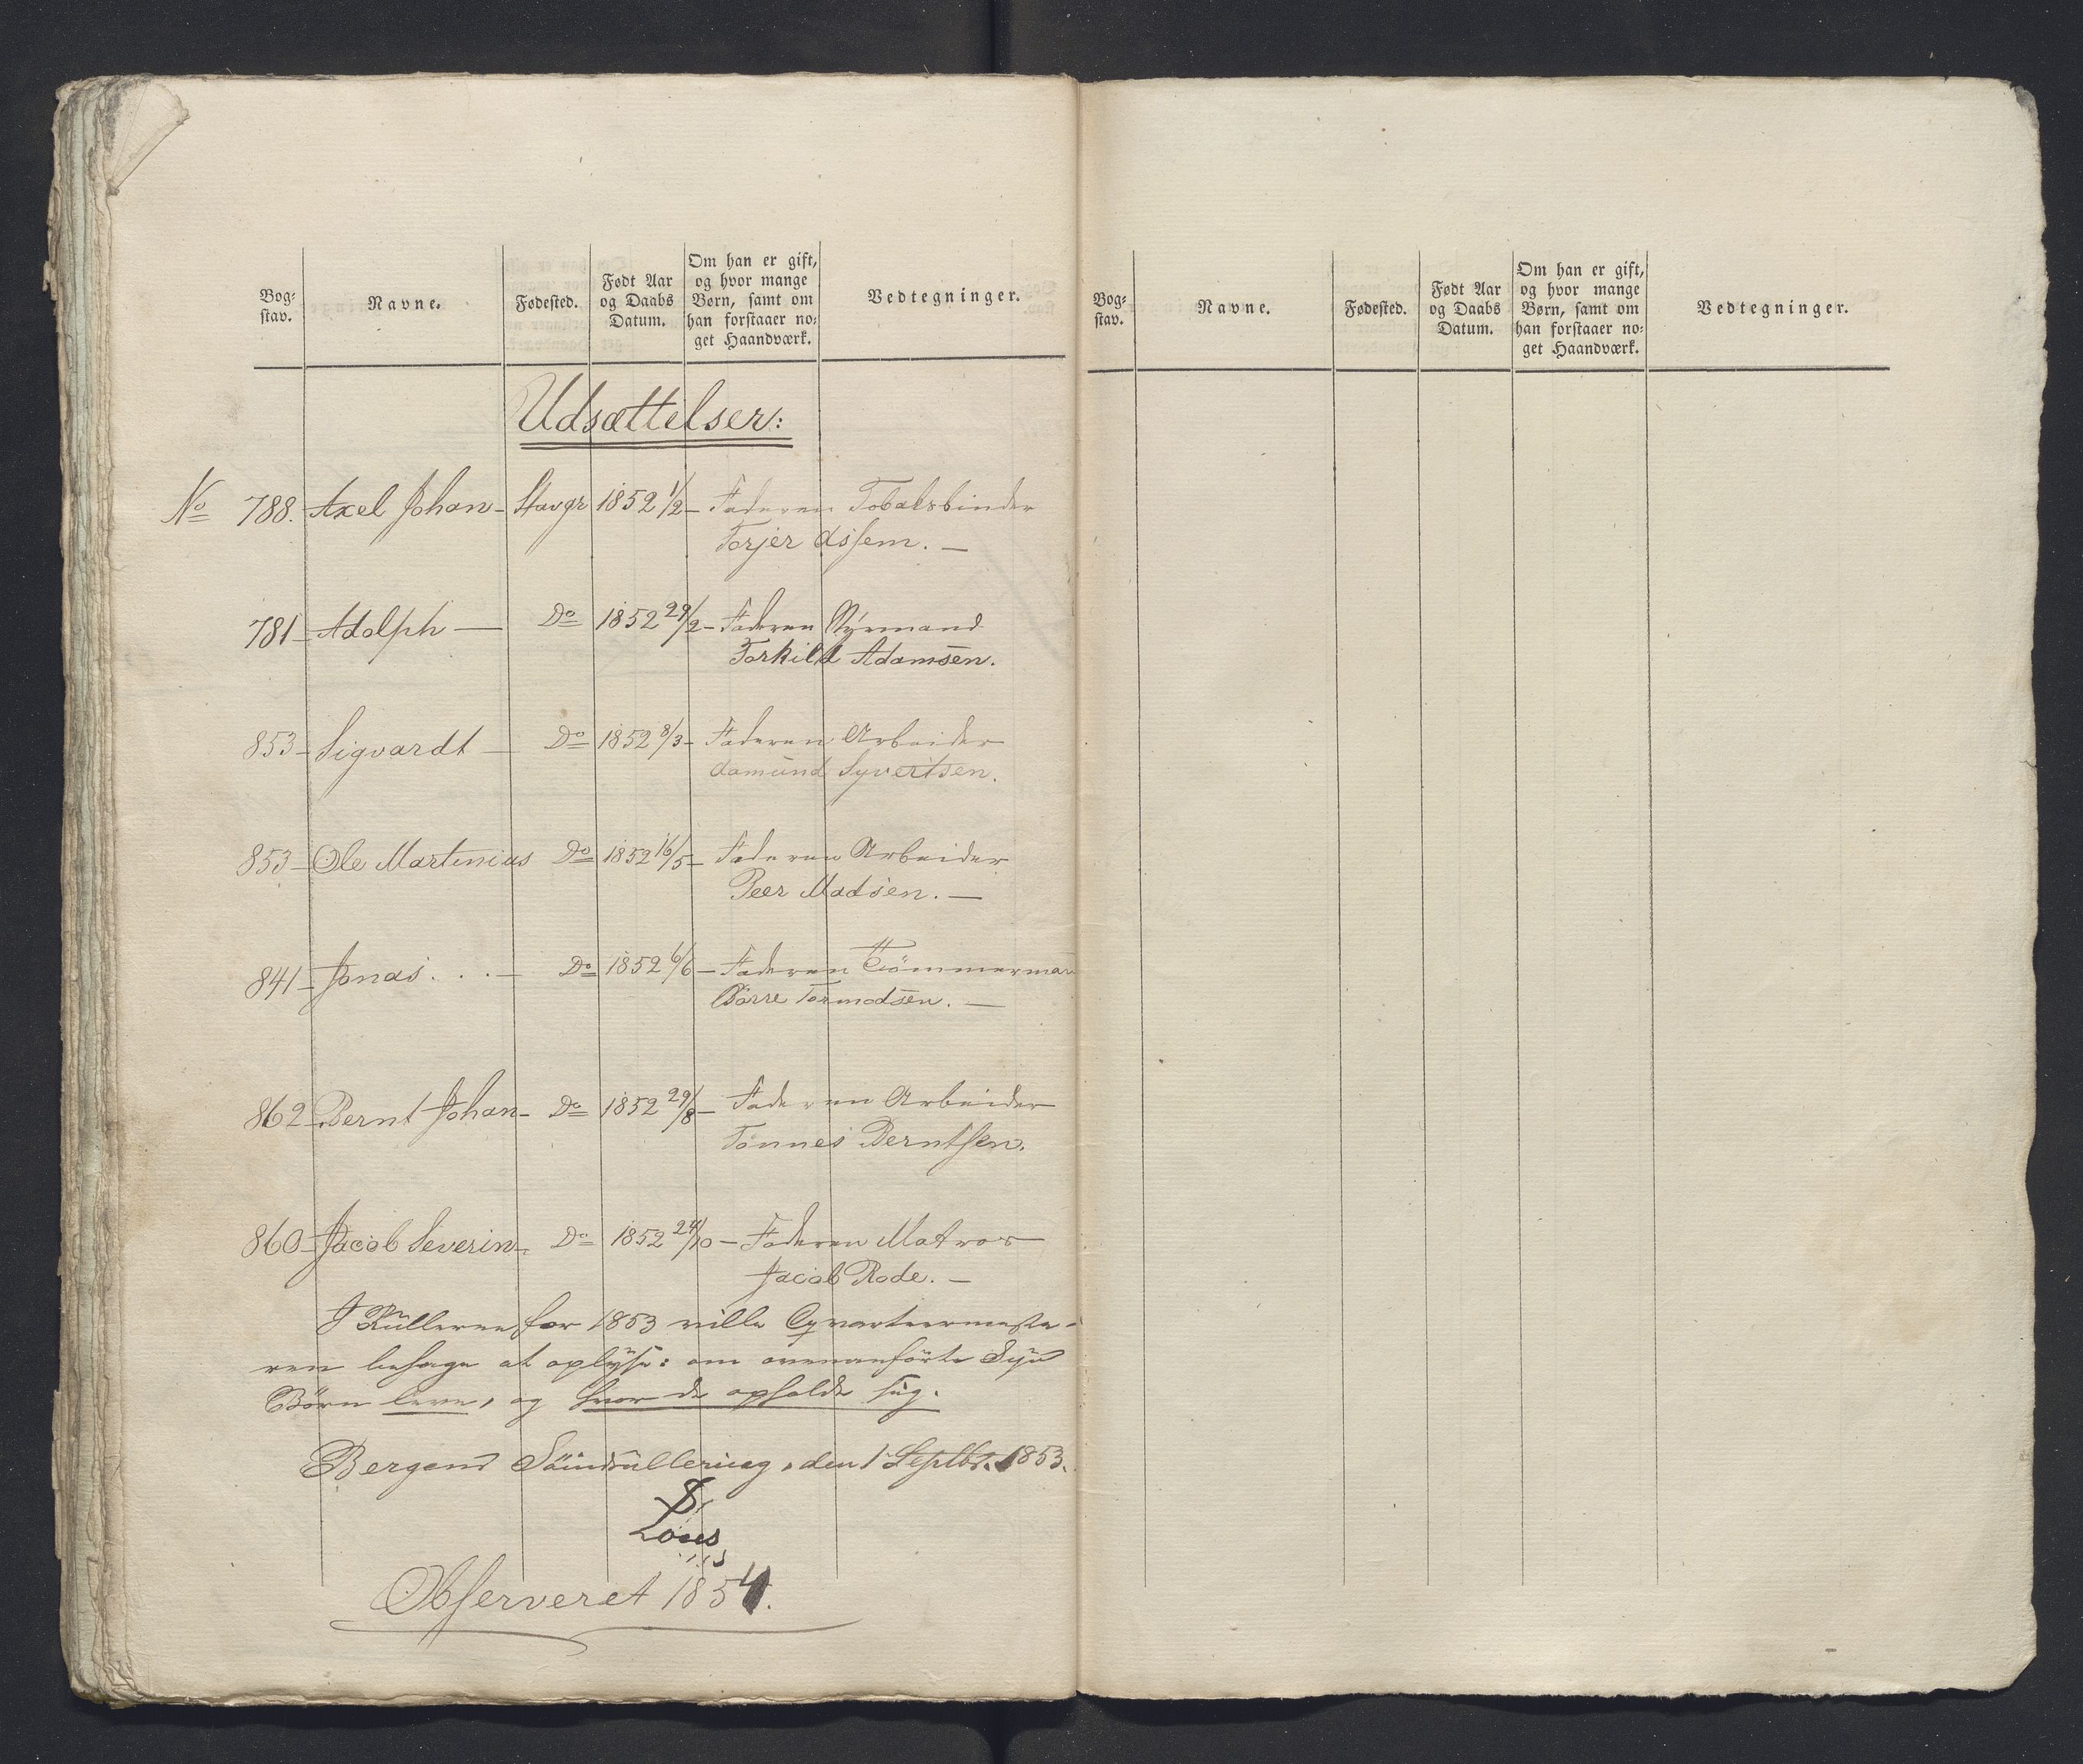 Bog-
stav.
Navne.
Fødested.
Født Aar
og Daabs
Datum.
Om han er gift,
og hvor mange
Børn, samt om
han forstaaer no-
get Haandværk.
Vedtegninger.
Udsættelser:
No 788. Axel Johan - Stavgr 1852 1/2 - Faderen
Torjer
781 - Adolph — Do 1852 29/2 - Faderen Styrmand
Torkild Adamsen.
853 - Sigvardt — Do 1852 8/3 - Faderen Arbeider
Syvertsen.
853 - Ole Martinius Do 1852 16/5 - Faderen Arbeider
Peer Madsen. —
841 - Jonas. . . — Do 1852 6/6 - Faderen Tømmerman
Børre Tormodsen. —
862 - Bernt Johan - Do 1852 29/8 - Faderen Arbeider
Tønnes Berntsen.
860 - Jacob Severin - Do 1852 24/10 - Faderen Matros
Jacob Rode. —
I Rullerne for 1853 ville Qvarteermeste-
ren behage at oplyse: om ovenanførte Syv
Børn leve, og hvor de opholde sig.
Bergens Søindrullering, den 1 Septbr. 1853.
Observeret 1854.
Bog-
stav.
Navne.
Fødested.
Født Aar
og Daabs
Datum.
Om han er gift,
og hvor mange
Børn, samt om
han forstaaer no-
get Haandværk.
Vedtegninger.